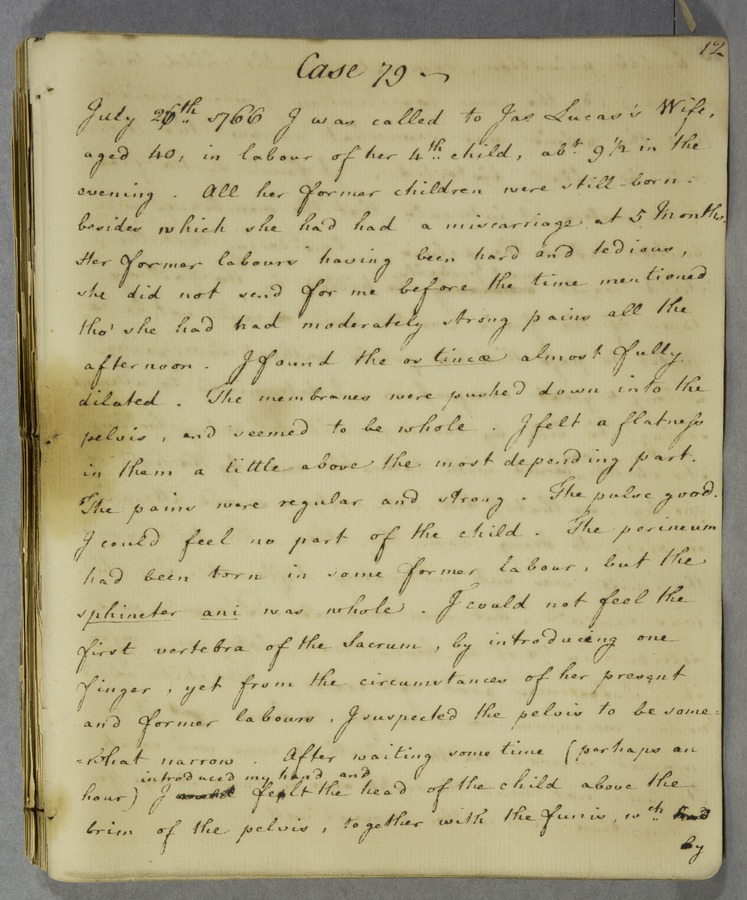 12
Case 79
July 26th 1766 I was called to Jas Lucas's Wife,
aged 40, in labour of her 4th child, abt 9 1/2 in the
evening. All her former children were still-born:
besides which she had had a miscarriage at 5 Months.
Her former labours having been hard and tedious,
she did not send for me before the time mentioned
tho' she had had moderately strong pains all the
afternoon. I found the os tincæ almost fully
dilated. The membranes were pushed down into the
pelvis, and seemed to be whole. I felt a flatness
in them a little above the most depending part.
The pains were regular and strong. The pulse good.
I could feel no part of the child. The perineum
had been torn in some former labour, but the
sphincter ani was whole. I could not feel the
first vertebra of the Sacrum, by introducing one
finger, yet from the circumstances of her present
and former labours, I suspected the pelvis to be some=
=what narrow. After waiting some time (perhaps an
introduced my hand and
hour) I felt the head of the child above the
brim of the pelvis, together with the funis, wch had
by